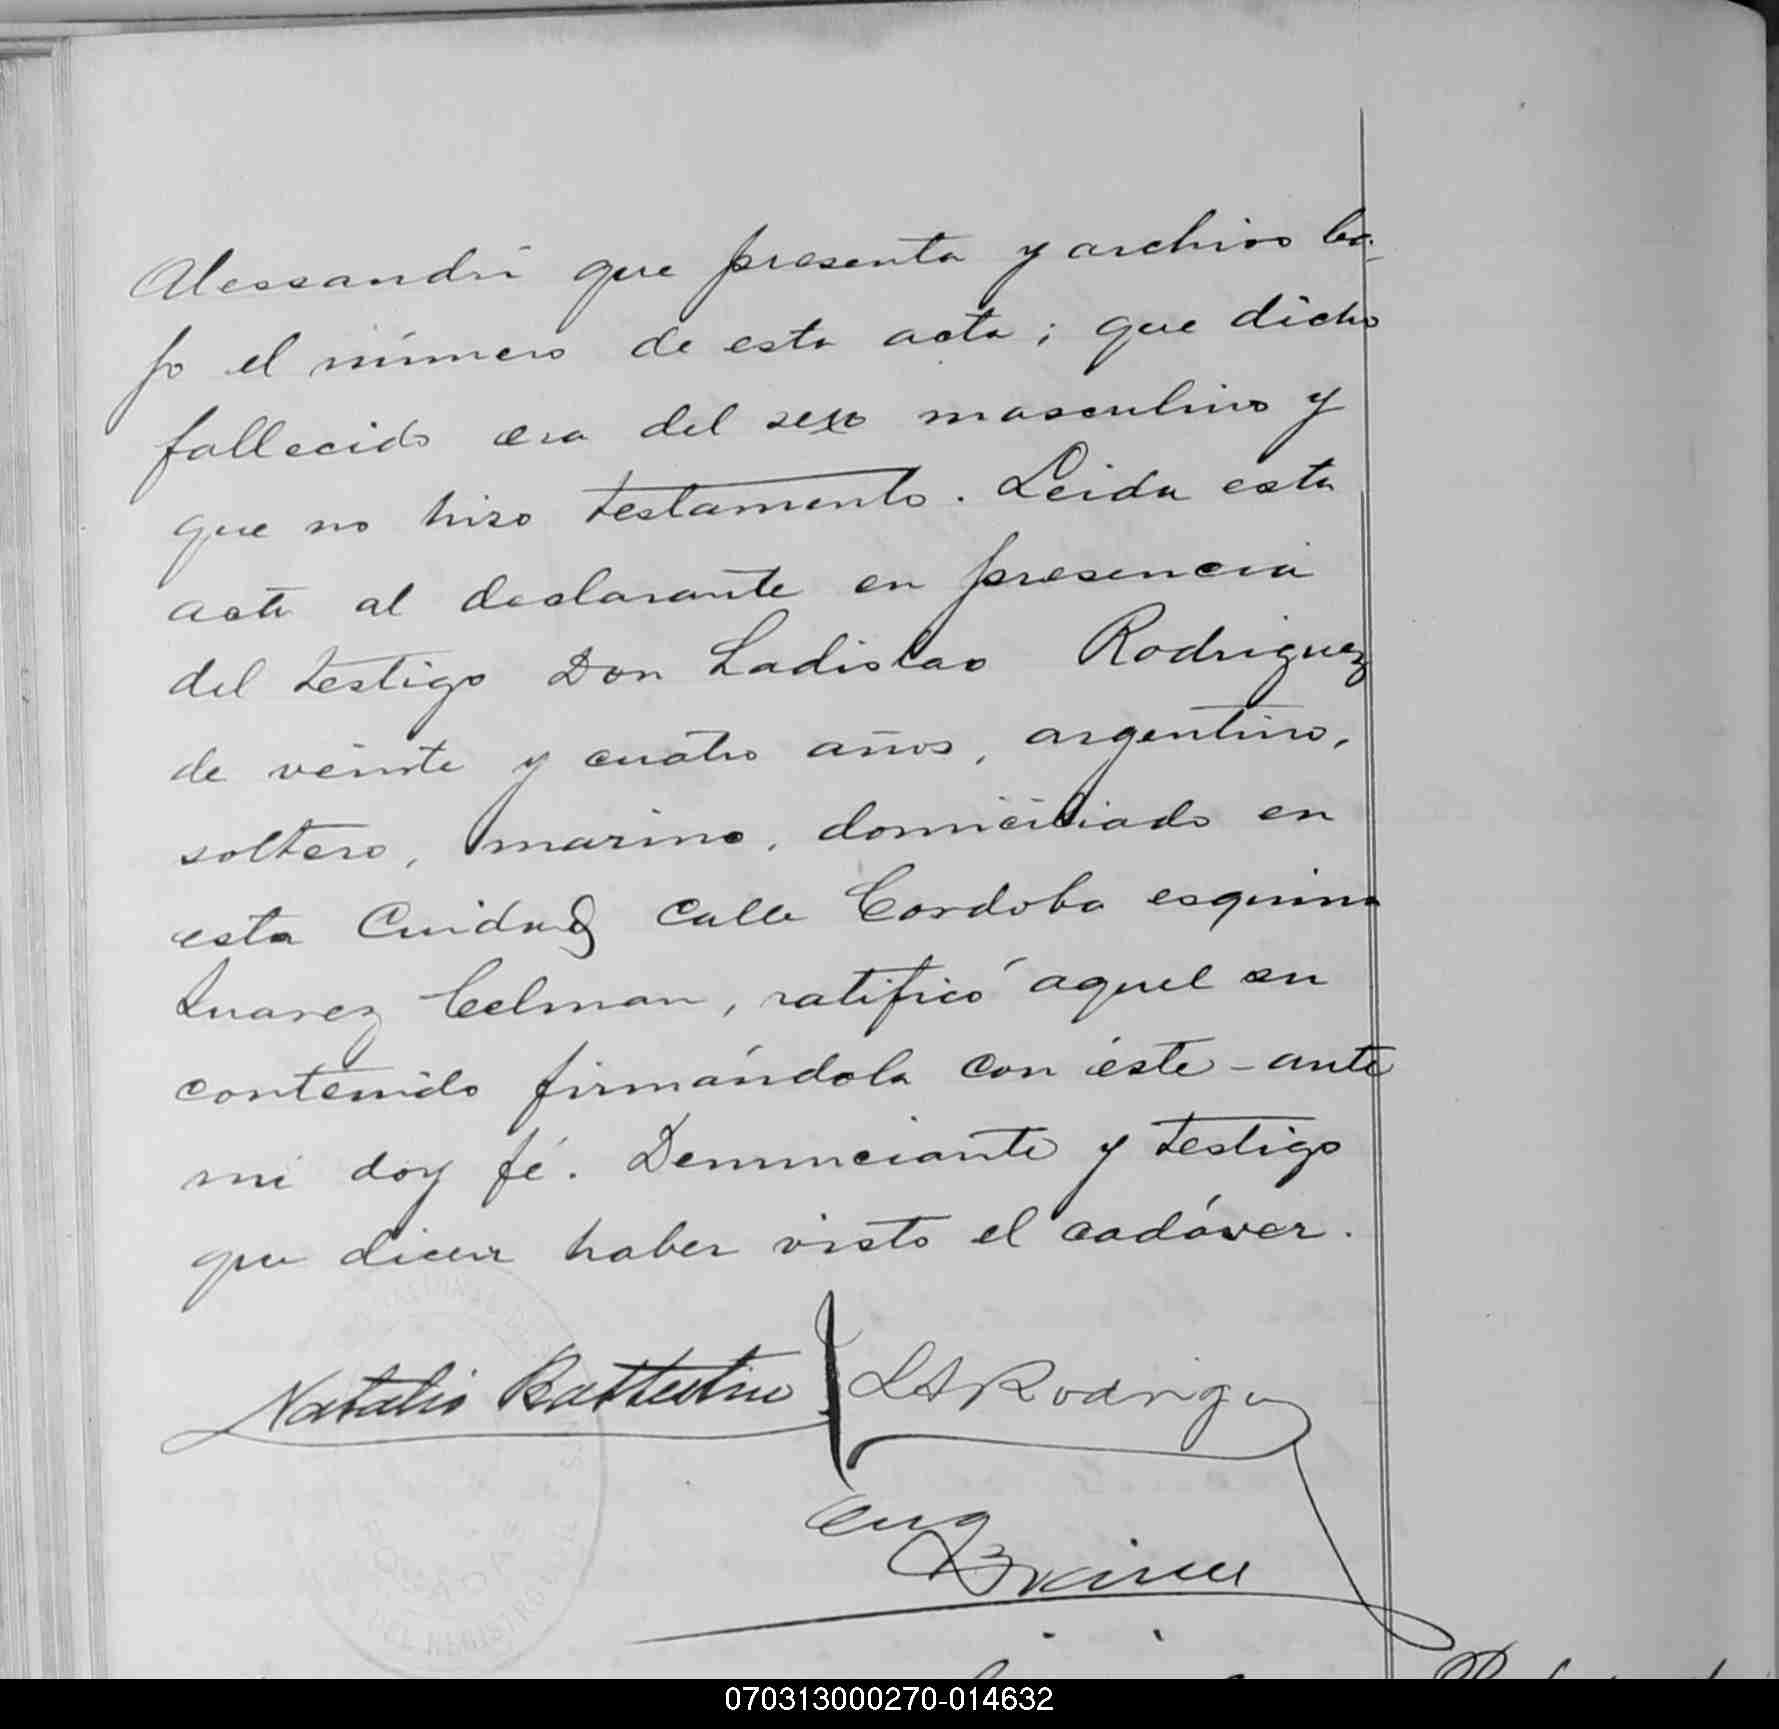 Alessandri que presenta y archivo ba-
jo el número de esta acta; que dicho
fallecido era del sexo masculino y
que no hizo testamento. Leida esta
acta al declarante en presencia
del testigo Don Ladislao Rodriguez
de veinte y cuatro años, argentino,
soltero, marino, domiciliado en
esta Cuidad calle Cordoba esquina
Juarez Celman, ratificó aquel su
contenido firmándola con éste - ante
mi doy fé. Denunciante y testigo
que dicen haber visto el cadáver.
Natalio Battestin
LARodriguez
Eug
POSADAS
DEL REGISTRO
070313000270-014632